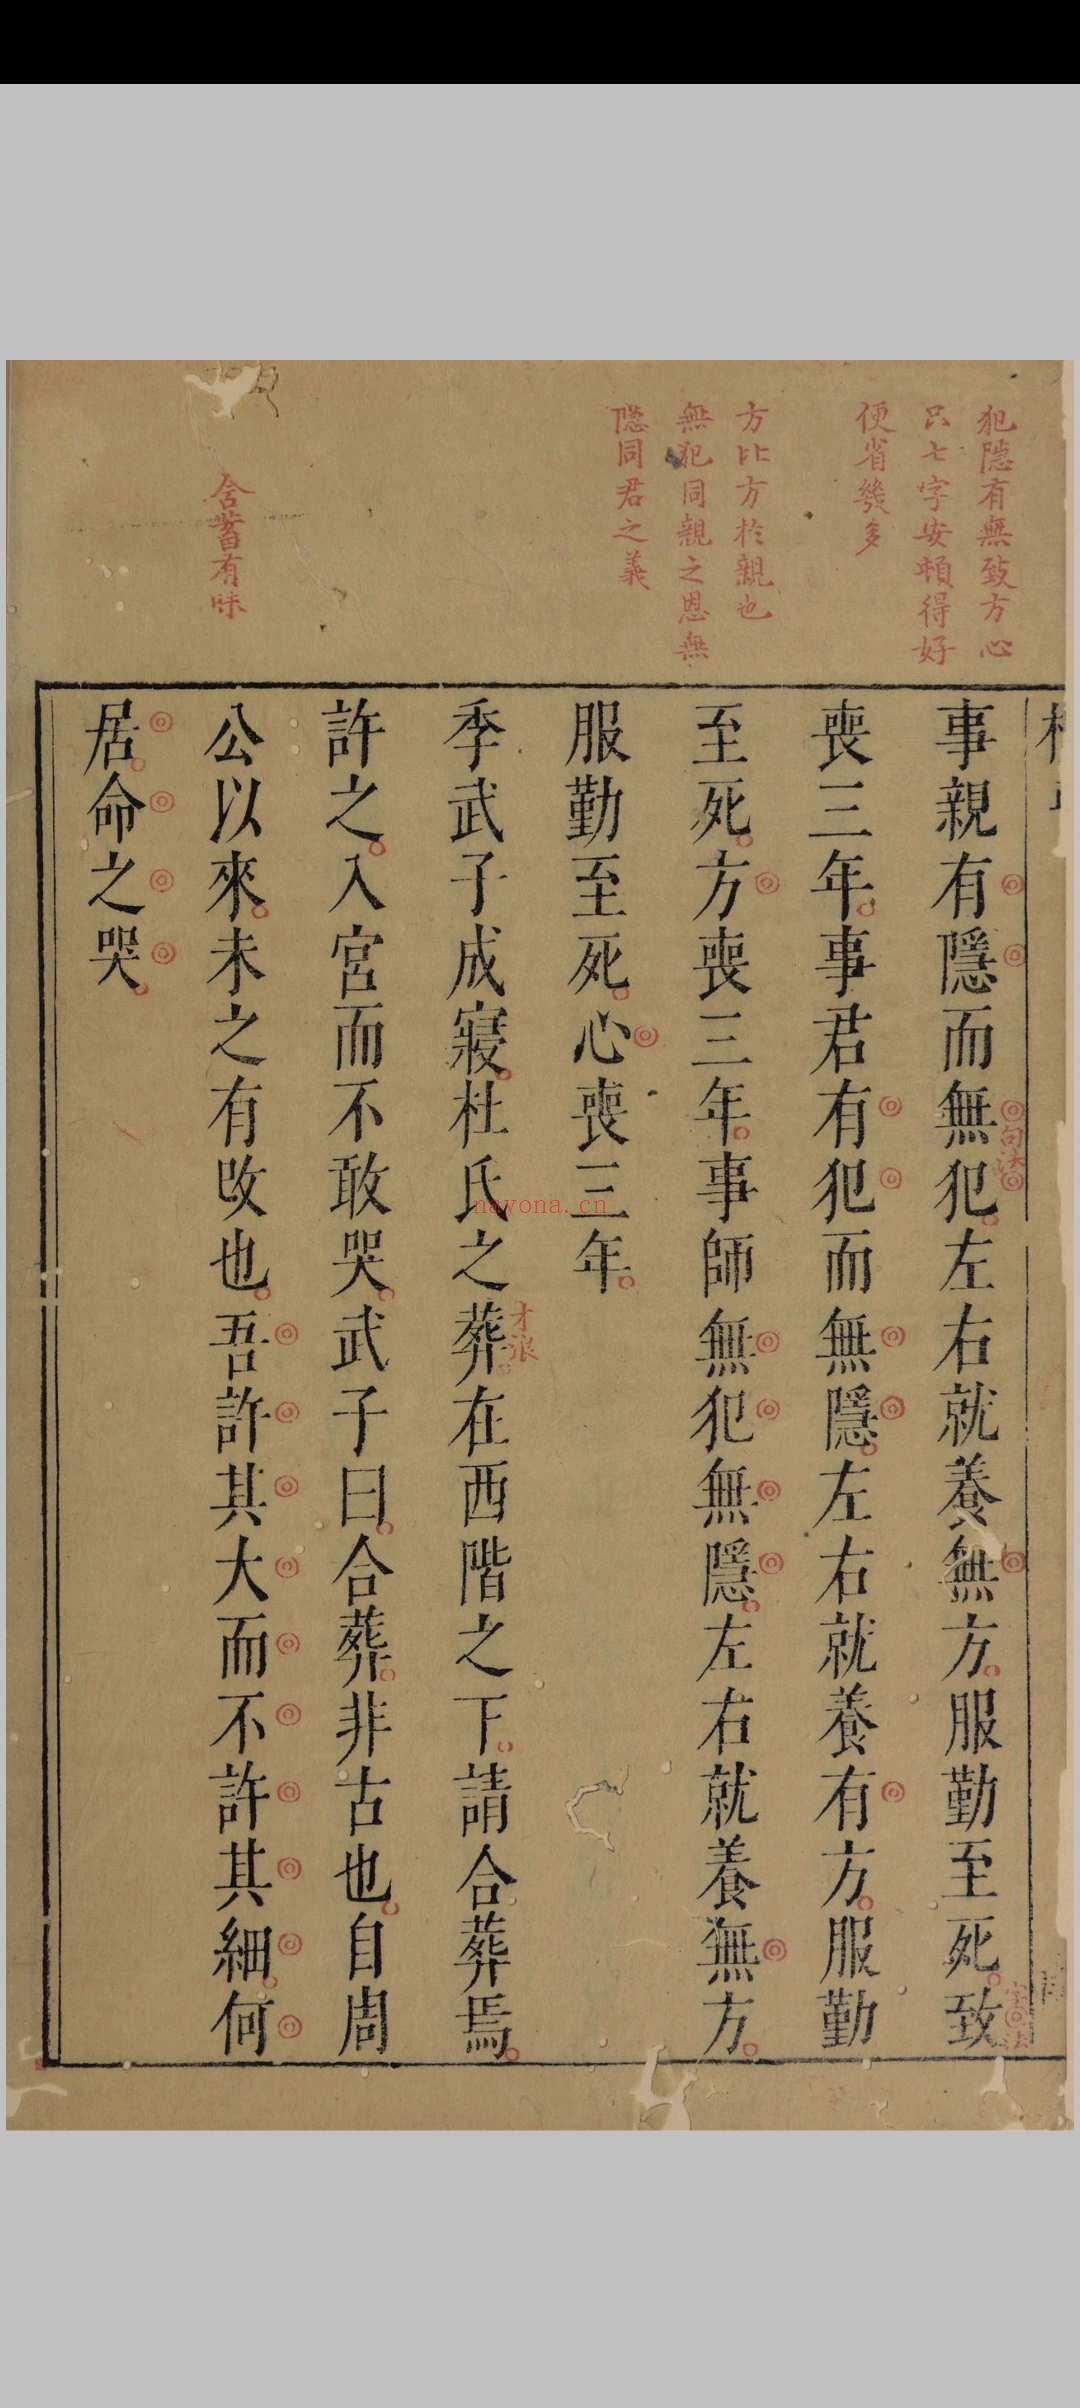 犯隠有無致方心
只七字安頓得好
便省幾多
方比方於親也
無犯同親之恩無
隠同君之義
含蓄有味
事親有隱而無犯左右就養無方服勤至死致
喪三年事君有犯而無隱左右就養有方服勤
至死方喪三年事師無犯無隱左右就養無方
服勤至死心喪三年
季武子成寢杜氏之葬在西階之下請合葬焉
許之入宮而不敢哭武子曰合葬非古也自周
公以來未之有改也吾許其大而不許其細何
居命之哭
句法
字法
才浪
nayona.cn